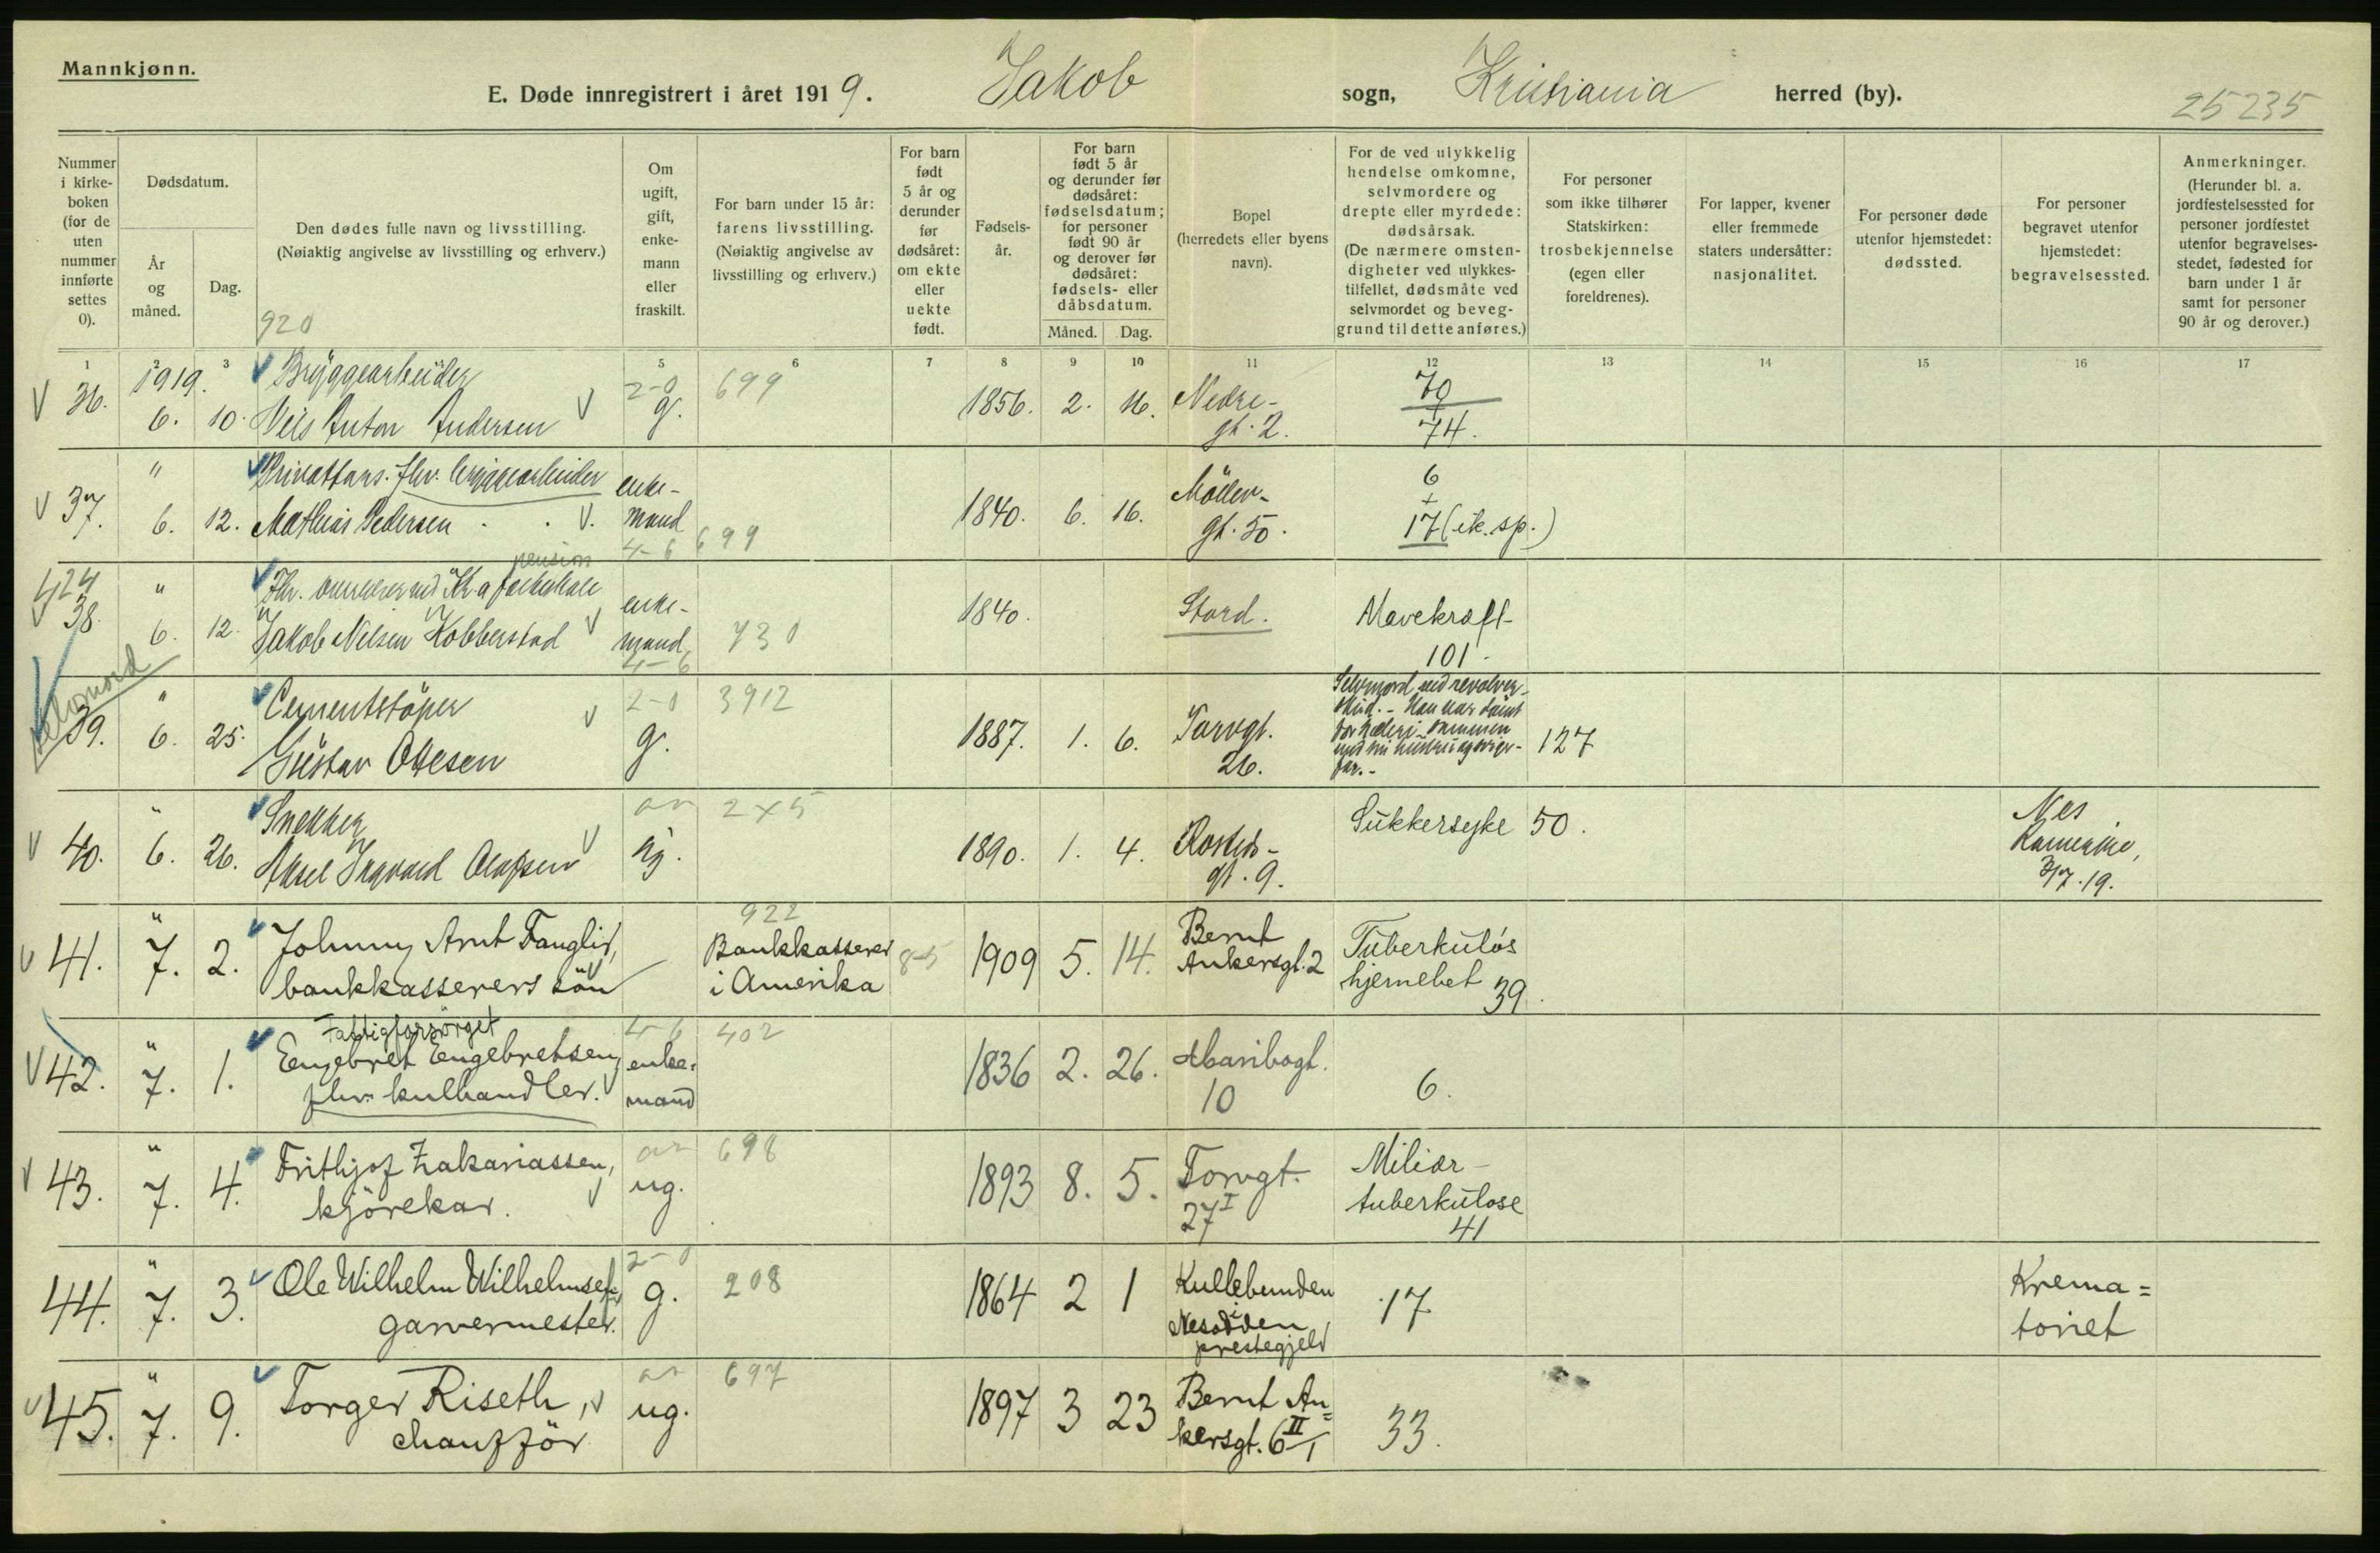 Mannkjønn.
E. Døde innregistrert i året 1919. Jakob sogn, Kristiania herred (by). 25235
Nummer i kirkeboken (for de uten nummer innførte settes 0).
Dødsdatum.
År og måned.
Dag.
Den dødes fulle navn og livsstilling.
(Nøiaktig angivelse av livsstilling og erhverv.)
920
Om ugift, gift, enkemann eller fraskilt.
For barn under 15 år: farens livsstilling.
(Nøiaktig angivelse av livsstilling og erhverv.)
For barn født 5 år og derunder før dødsåret: om ekte eller uekte født.
Fødselsår.
For barn født 5 år og derunder før dødsåret: fødselsdatum; for personer født 90 år og derover før dødsåret: fødsels- eller dåbsdatum.
Måned. Dag.
Bopel (herredets eller byens navn).
For de ved ulykkelig hendelse omkomne, selvmordere og drepte eller myrdede: dødsårsak.
(De nærmere omstendigheter ved ulykkestilfellet, dødsmåte ved selvmordet og beveggrund til dette anføres.)
For personer som ikke tilhører Statskirken: trosbekjennelse (egen eller foreldrenes).
For lapper, kvener eller fremmede staters undersåtter: nasjonalitet.
For personer døde utenfor hjemstedet: dødssted.
For personer begravet utenfor hjemstedet: begravelsessted.
Anmerkninger.
(Herunder bl. a. jordfestelsessted for personer jordfestet utenfor begravelsesstedet, fødested for barn under 1 år samt for personer 90 år og derover.)
1 2 3 5 6 7 8 9 10 11 12 13 14 15 16 17
1919.
V 36. 6. 10. Bryggearbeider
Nels Anton Andersen V 2-0 g. 699 1856. 2. 16. Nedre-
gt. 2. 70
+
74.
V 37. " 6. 12. Privattans. fhv. bryggearbeider
Mathias Pedersen V. enke-
mand 4-6 699 1840. 6. 16. Möller-
gt. 50. 6
+
17 (ik. sp.)
424
V 38. " 6. 12. pension
Jakob Nilsen Kobberstad V enke-
mand 4-6 730 1840. Stord. Mavekræft
101.
selvmord
39. " 6. 25. Cementstöper
Gustav Olesen V 2-0 g. 3912 1887. 1. 6. Torvgt.
26. Selvmord ved revolver-
skud. - Han var dömt
for hæleri sammen
127
V 40. " 6. 26. Snekker
Aksel Ingvard Olafsen V ug. 2x5 1890. 1. 4. Rosteds-
gt. 9. Sukkersyke 50. Nes
Romerike,
3/7.19.
V 41. " 7. 2. Johnny Arnt Fanglid,
bankkasserers sön 922
Bankkasserer
i Amerika 8-5 1909 5. 14. Bernt
Ankersgt. 2 Tuberkulös
hjernebet 39.
V 42. " 7. 1. Fattigforsörget
Engebret Engebretsen,
fhv. kulhandler. V 4-6 enke=
mand 402 1836 2. 26. Maribogt.
10 6.
V 43. " 7. 4. Frithjof Zakariassen,
kjörekar. V ug. 698 1893 8. 5. Torvgt.
27 I Miliær-
tuberkulose
41
44. " 7. 3. Ole Wilhelm Wilhelmsen,
garvermester. 2-0 g. 208 1864 2 1 Kullebunden
i
Nesodden
prestegjeld 17 Krema=
toriet
V 45. " 7. 9. Torger Riseth, V
chaufför ug. 697 1897 3 23 Bernt An=
kersgt. 6 II/I 33.